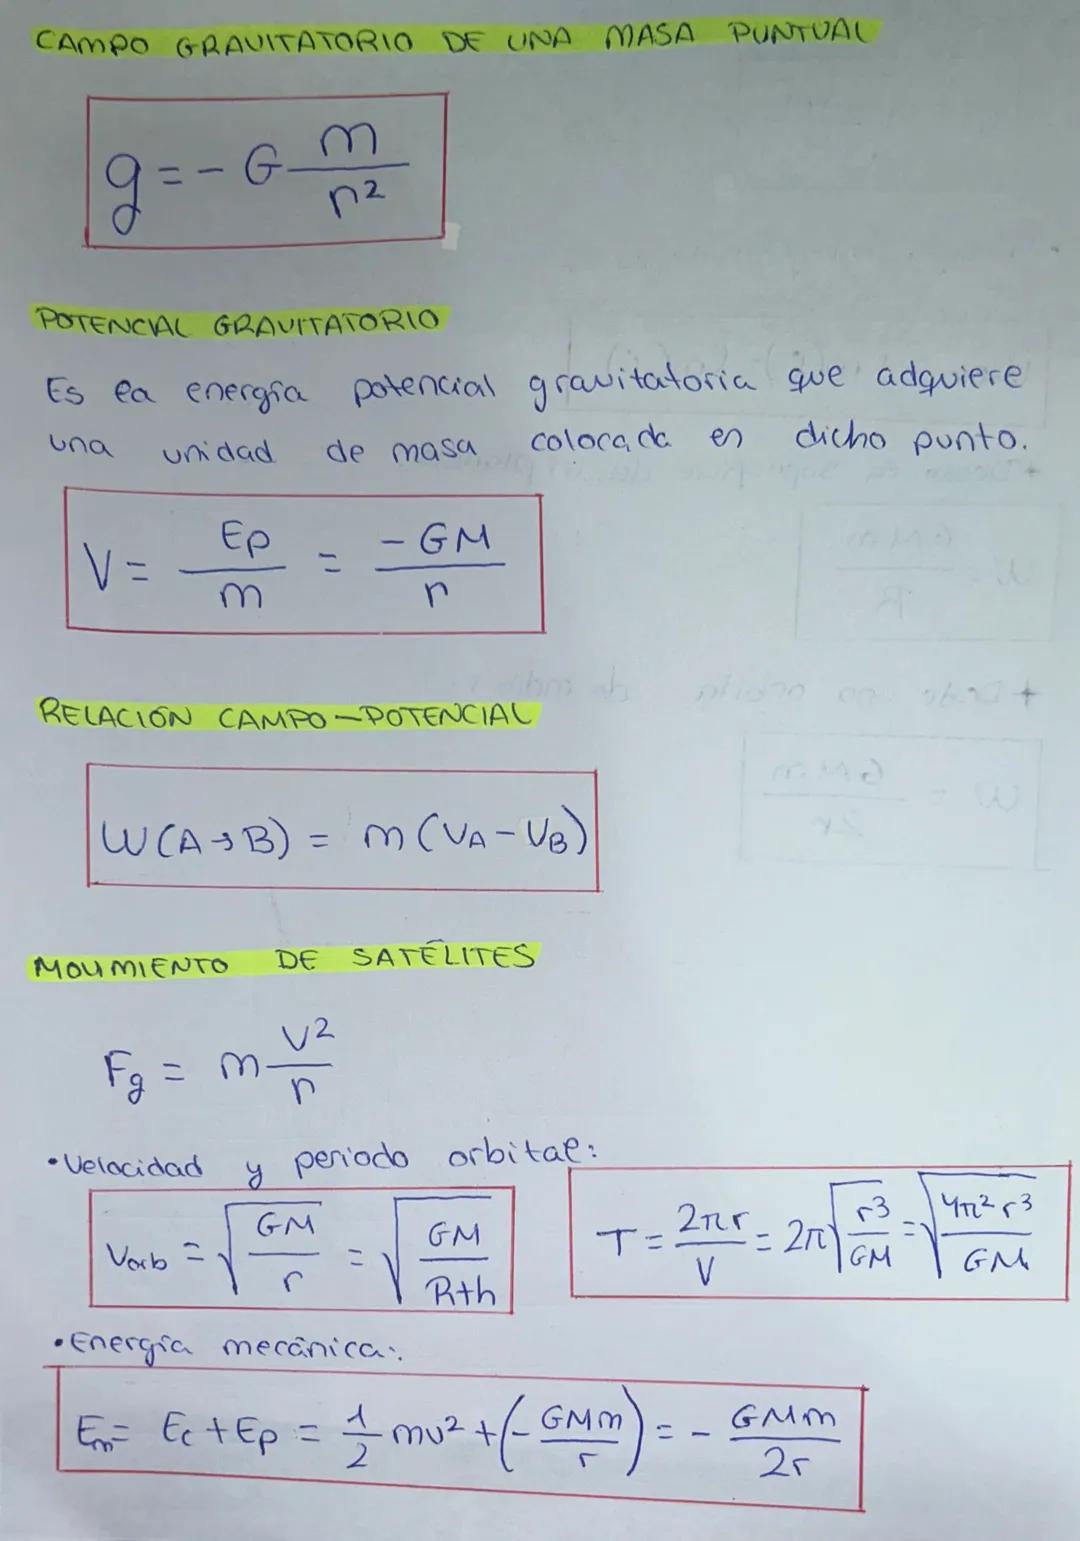 CAMPO GRAVITATORIO DE UNA MASA PUNTUAL
g = - G m/r²
POTENCIAL GRAVITATORIO
Es la energía potencial gravitatoria que adquiere
una unidad de masa colocada en dicho punto.
V = Ep/m = -GM/r
RELACIÓN CAMPO-POTENCIAL
W(A→B) = m(VA-VB)
MOVIMIENTO DE SATÉLITES
Fg = m v²/r
•Velocidad y periodo orbital:
Vorb = √(GM/r) = √(GM/R+h)
T = 2πr/V = 2π√(r³/GM) = √(4π²r³/GM)
•Energía mecánica:
Em = Ec + Ep = 1/2 mv² + (- GMm/r) = - GMm/2r